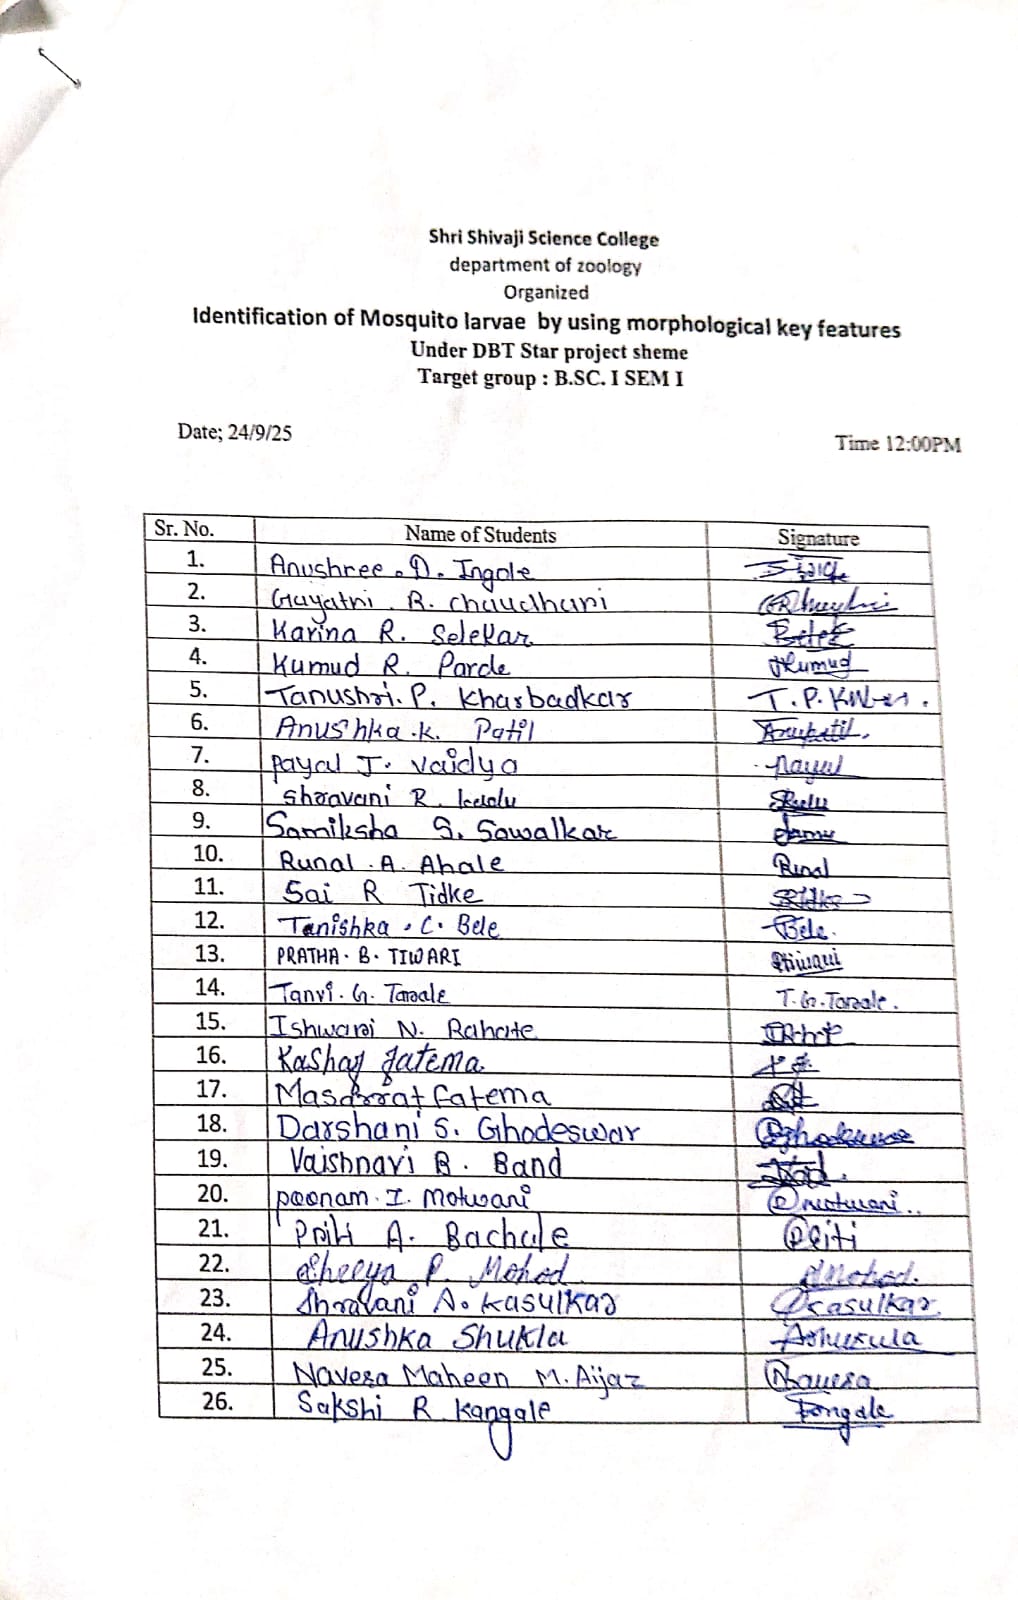 Shri Shivaji Science College
department of zoology
Organized
Identification of Mosquito larvae by using morphological key features
Under DBT Star project sheme
Target group : B.SC. I SEM I
Date; 24/9/25 Time 12:00PM
Sr. No. Name of Students Signature
1. Anushree . D. Ingole
2. Gayatri . R. Chaudhari
3. Karina R. Selekar
4. Kumud R. Parde Kumud
5. Tanushri. P. Kharbadkar T. P.
6. Anushka .K. Patil
7. Payal J. Vaidya Payal
8. Shravani R. Kadu
9. Samiksha S. Sawalkar
10. Runal . A. Ahale Runal
11. Sai R Tidke
12. Tanishka . C. Bele Bele.
13. PRATHA . B . TIWARI
14. Tanvi . G. Tarale T. G. Tarale.
15. Ishwari N. Rahate
16. Kashaf fatema
17. Masarrat fatema
18. Darshani S. Ghodeswar
19. Vaishnavi B. Band
20. Poonam . I. Motwani
21. Priti A. Bachale Priti
22. Sheeya P. Mohod
23. Shravani A. Kasulkar Kasulkar
24. Anushka Shukla AShukula
25. Navera Maheen M. Aijaz Navera
26. Sakshi R Kangale